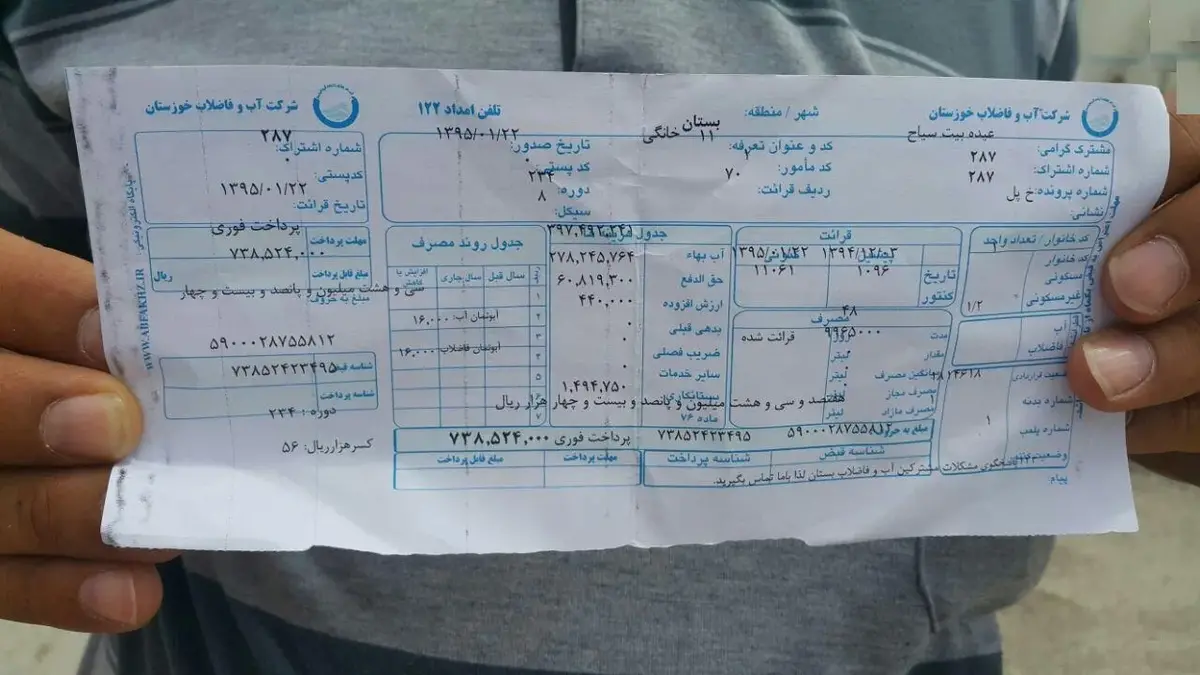 شرکت آب و فاضلاب خوزستان
شهر / منطقه: بستان
تلفن امداد ۱۲۲
شرکت آب و فاضلاب خوزستان
مشترک گرامی: عبده بیت سیاح
شماره اشتراک: ۲۸۷
شماره پرونده: ۲۸۷
نشانی: خ پل
کد و عنوان تعرفه: ۱۱ خانگی
کد مأمور: ۲
ردیف قرائت: ۷۰
تاریخ صدور: ۱۳۹۵/۰۱/۲۲
کد پستی: ۰
دوره: ۲۳۴
سیکل: ۸
شماره اشتراک: ۲۸۷
کدپستی: ۰
تاریخ قرائت: ۱۳۹۵/۰۱/۲۲
مهلت پرداخت پرداخت فوری
مبلغ قابل پرداخت ۷۳۸,۵۲۴,۰۰۰ ریال
مبلغ به حروف
سی و هشت میلیون و پانصد و بیست و چهار
۵۹۰۰۰۲۸۷۵۵۸۱۲
شناسه قبض
۷۳۸۵۲۴۲۳۴۹۵
شناسه پرداخت
دوره : ۲۳۴
کسرهزارریال: ۵۶
WWW.ABFAKHZ.IR
پایگاه الکترونیکی:
کد خانوار / تعداد واحد
کد خانوار
مسکونی
غیرمسکونی
۱/۲
آب
فاضلاب
وضعیت قراردادی
شماره بدنه
شماره پلمب
۱
پیام
قرائت
۱۳۹۴/۱۲/۰۳
۱۳۹۵/۰۱/۲۲
تاریخ
کنتور
۱۰۹۶
۱۱۰۶۱
مصرف
مدت ۴۸ روز
مقدار ۹۹۶۵۰۰۰ لیتر قرائت شده
میانگین مصرف لیتر
مصرف مجاز
مصرف مازاد لیتر
۳۹۷,۴۹۲,۲۴۱
آب بهاء ۲۷۸,۲۴۵,۷۶۴
حق الدفع ۶۰,۸۱۹,۳۰۰
ارزش افزوده ۴۴۰,۰۰۰
بدهی قبلی ۰
ضریب فصلی ۰
سایر خدمات ۰
بستانکاری ۱,۴۹۴,۷۵۰
ماده ۷۶
جدول روند مصرف
سال قبل
سال جاری
افزایش یا کاهش
۱
۲
آبونمان آب: ۱۶,۰۰۰
۳
آبونمان فاضلاب: ۱۶,۰۰۰
۴
۵
۷
هفتصد و سی و هشت میلیون و پانصد و بیست و چهار هزار ریال
مبلغ به حروف
۵۹۰۰۰۲۸۷۵۵۸۱۲
۷۳۸۵۲۴۲۳۴۹۵
پرداخت فوری
۷۳۸,۵۲۴,۰۰۰
شناسه قبض
شناسه پرداخت
مهلت پرداخت
مبلغ قابل پرداخت
مشکلات مشترکین آب و فاضلاب بستان لذا باما تماس بگیرید.